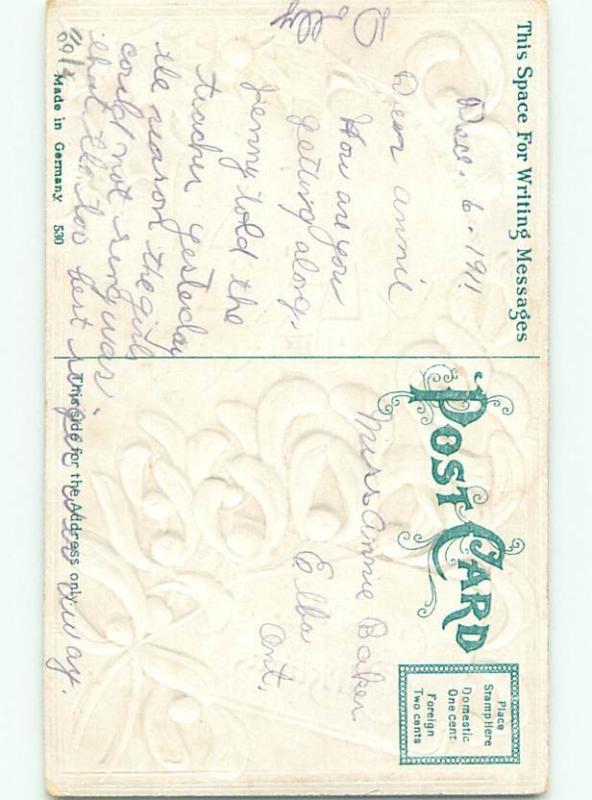 This Space For Writing Messages
Dec. 6. 1911
Dear Annie
How are you
getting along.
Jenny told the
teacher yesteday
the reason the girls
could not sing was
that the two best singers was away.
Made in Germany 530
POST CARD
Place
Stamp Here
Domestic
One cent
Foreign
Two cents
Miss Annie Baker
Elba
Ont.
This side for the Address only.